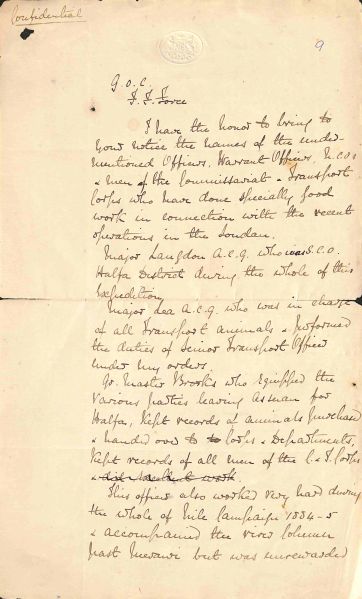 Confidential
9
G.O.C.
F.F. Force
I have the honor to bring to
your notice the names of the under
mentioned Officers, Warrant Officers, N.C.Os
& men of the Commissariat & Transport
Corps who have done specially good
work in connection with the recent
operations in the Soudan.
Major Langdon A.C.G. who was S.C.O.
Halfa District during the whole of this
Expedition
Major Lea A.C.G. who was in charge
of all Transport animals & performed
the duties of Senior Transport Officer
under my orders.
Qr. Master Brooks who equipped the
various parties leaving Assuan for
Halfa, kept records of animals purchased
& handed over to to Corps & Departments,
kept records of all men of the C. & T. Corps
& did excellent work.
This officer also worked very hard during
the whole of Nile Campaign 1884-5
& accompanied the river column
past Merawi but was unrewarded